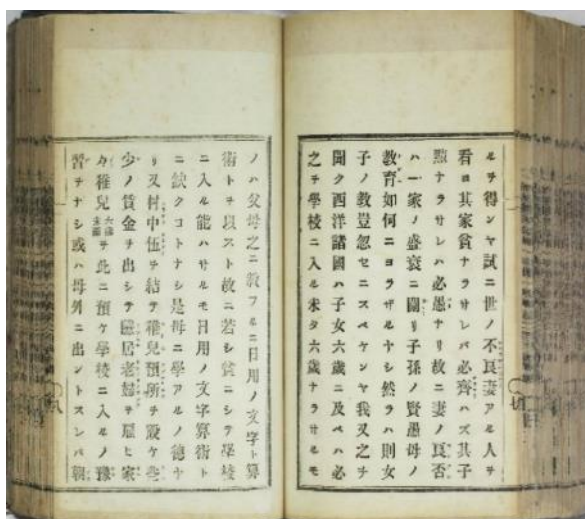 ルヲ得ンヤ試ニ世ノ不良妻アル人ヲ
看ヨ其家貧ナラサレバ必齊ハズ其子
黠ナラサレハ必愚ナリ故ニ妻ノ良否
ハ一家ノ盛衰ニ關リ子孫ノ賢愚母ノ
教育如何ニヨラザルヤシ然ラハ則女
子ノ教豈忽セニスベケンヤ我又之ヲ
聞ク西洋諸國ハ子女六歳ニ及ベハ必
之ヲ學校ニ入ル未タ六歳ナラサルモ
ノハ父母之ニ教フルニ日用ノ文字ト算
術トヲ以スト故ニ若シ貧ニシテ學校
ニ入ル能ハサルモ日用ノ文字算術ト
ニ缺クコトナシ是母ニ學アルノ徳ヤ
リ又村中伍ヲ結テ稚兒預所ヲ設ケ些
少ノ賃金ヲ出シテ隱居老婦ヲ雇ヒ家
々稚兒六歳未滿ヲ此ニ預ケ學校ニ入ルノ豫
習ヲナシ或ハ母外ニ出ントスレバ朝